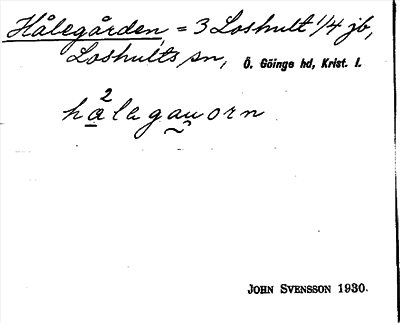 Hålegården, = 3 Loshult 1/4 jb,
Loshults sn, Ö. Göinge hd, Krist. l.
hå²lagauorn
JOHN SVENSSON 1930.